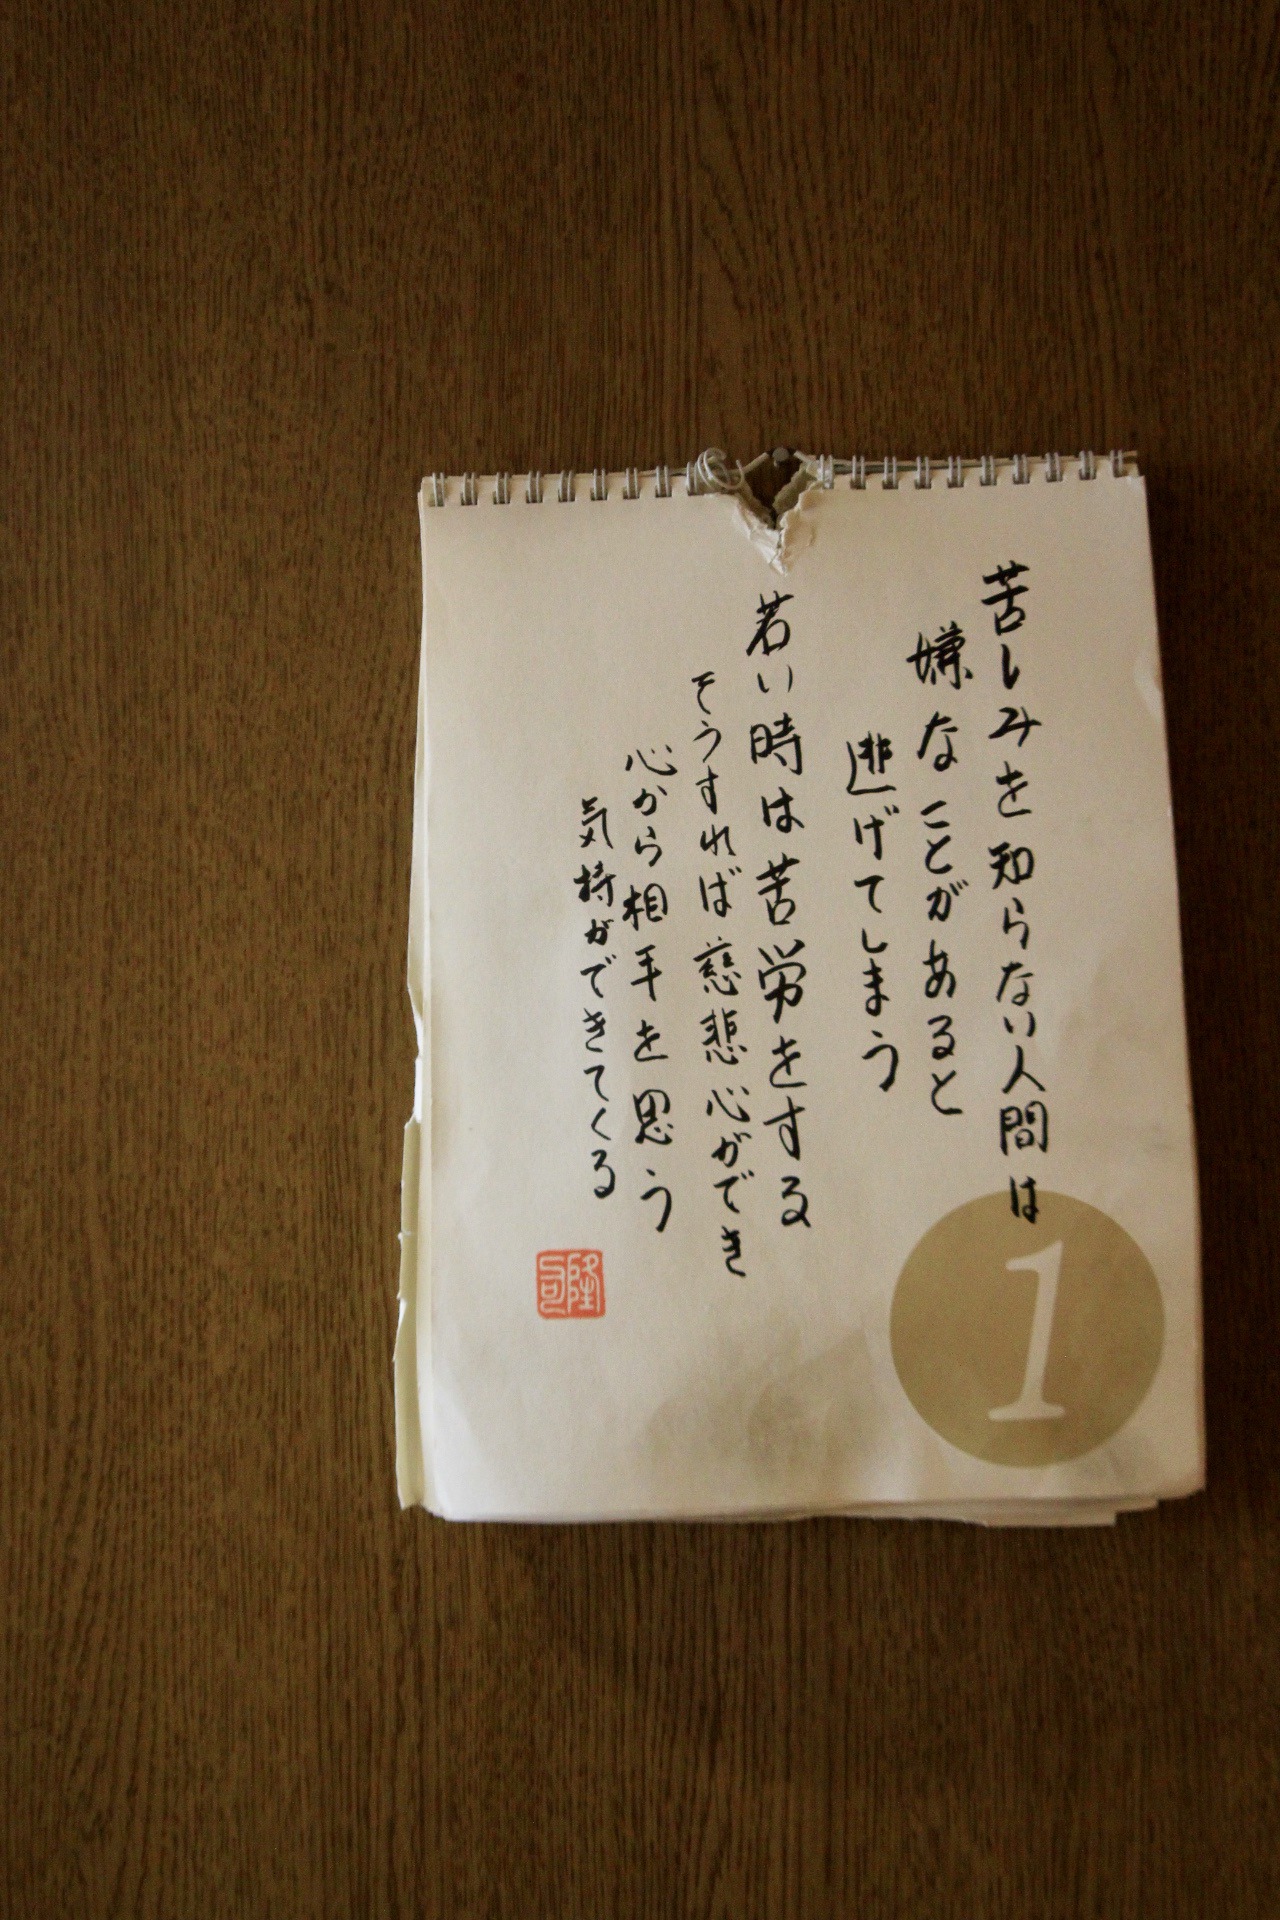 苦しみを知らない人間は
嫌なことがあると
逃げてしまう
若い時は苦労をする
そうすれば慈悲心ができ
心から相手を思う
気持ができてくる
隆司
1